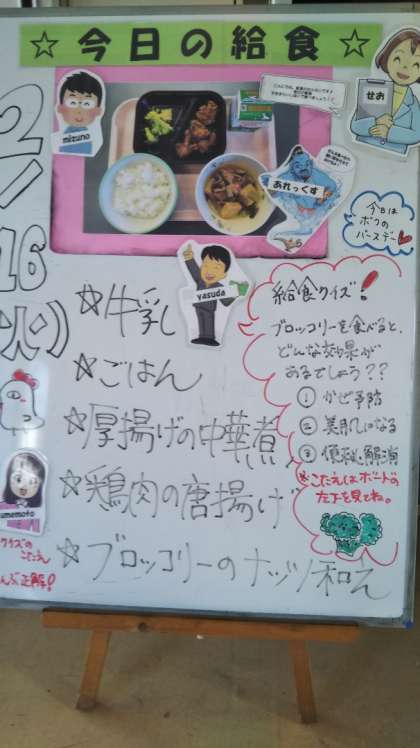 ☆今日の給食☆
せお
mizuno
あれっくす
今日は
ボクの
バースデー
2/16
(火)
yasuda
☆牛乳
☆ごはん
☆厚揚げの中華煮
☆鶏肉の唐揚げ
☆ブロッコリーのナッツ和え
給食クイズ!
ブロッコリーを食べると、
どんな効果が
あるでしょう??
① かぜ予防
② 美肌になる
③ 便秘解消
☆こたえはボードの
左下を見てね。
umemoto
クイズのこたえ
ぜんぶ正解!